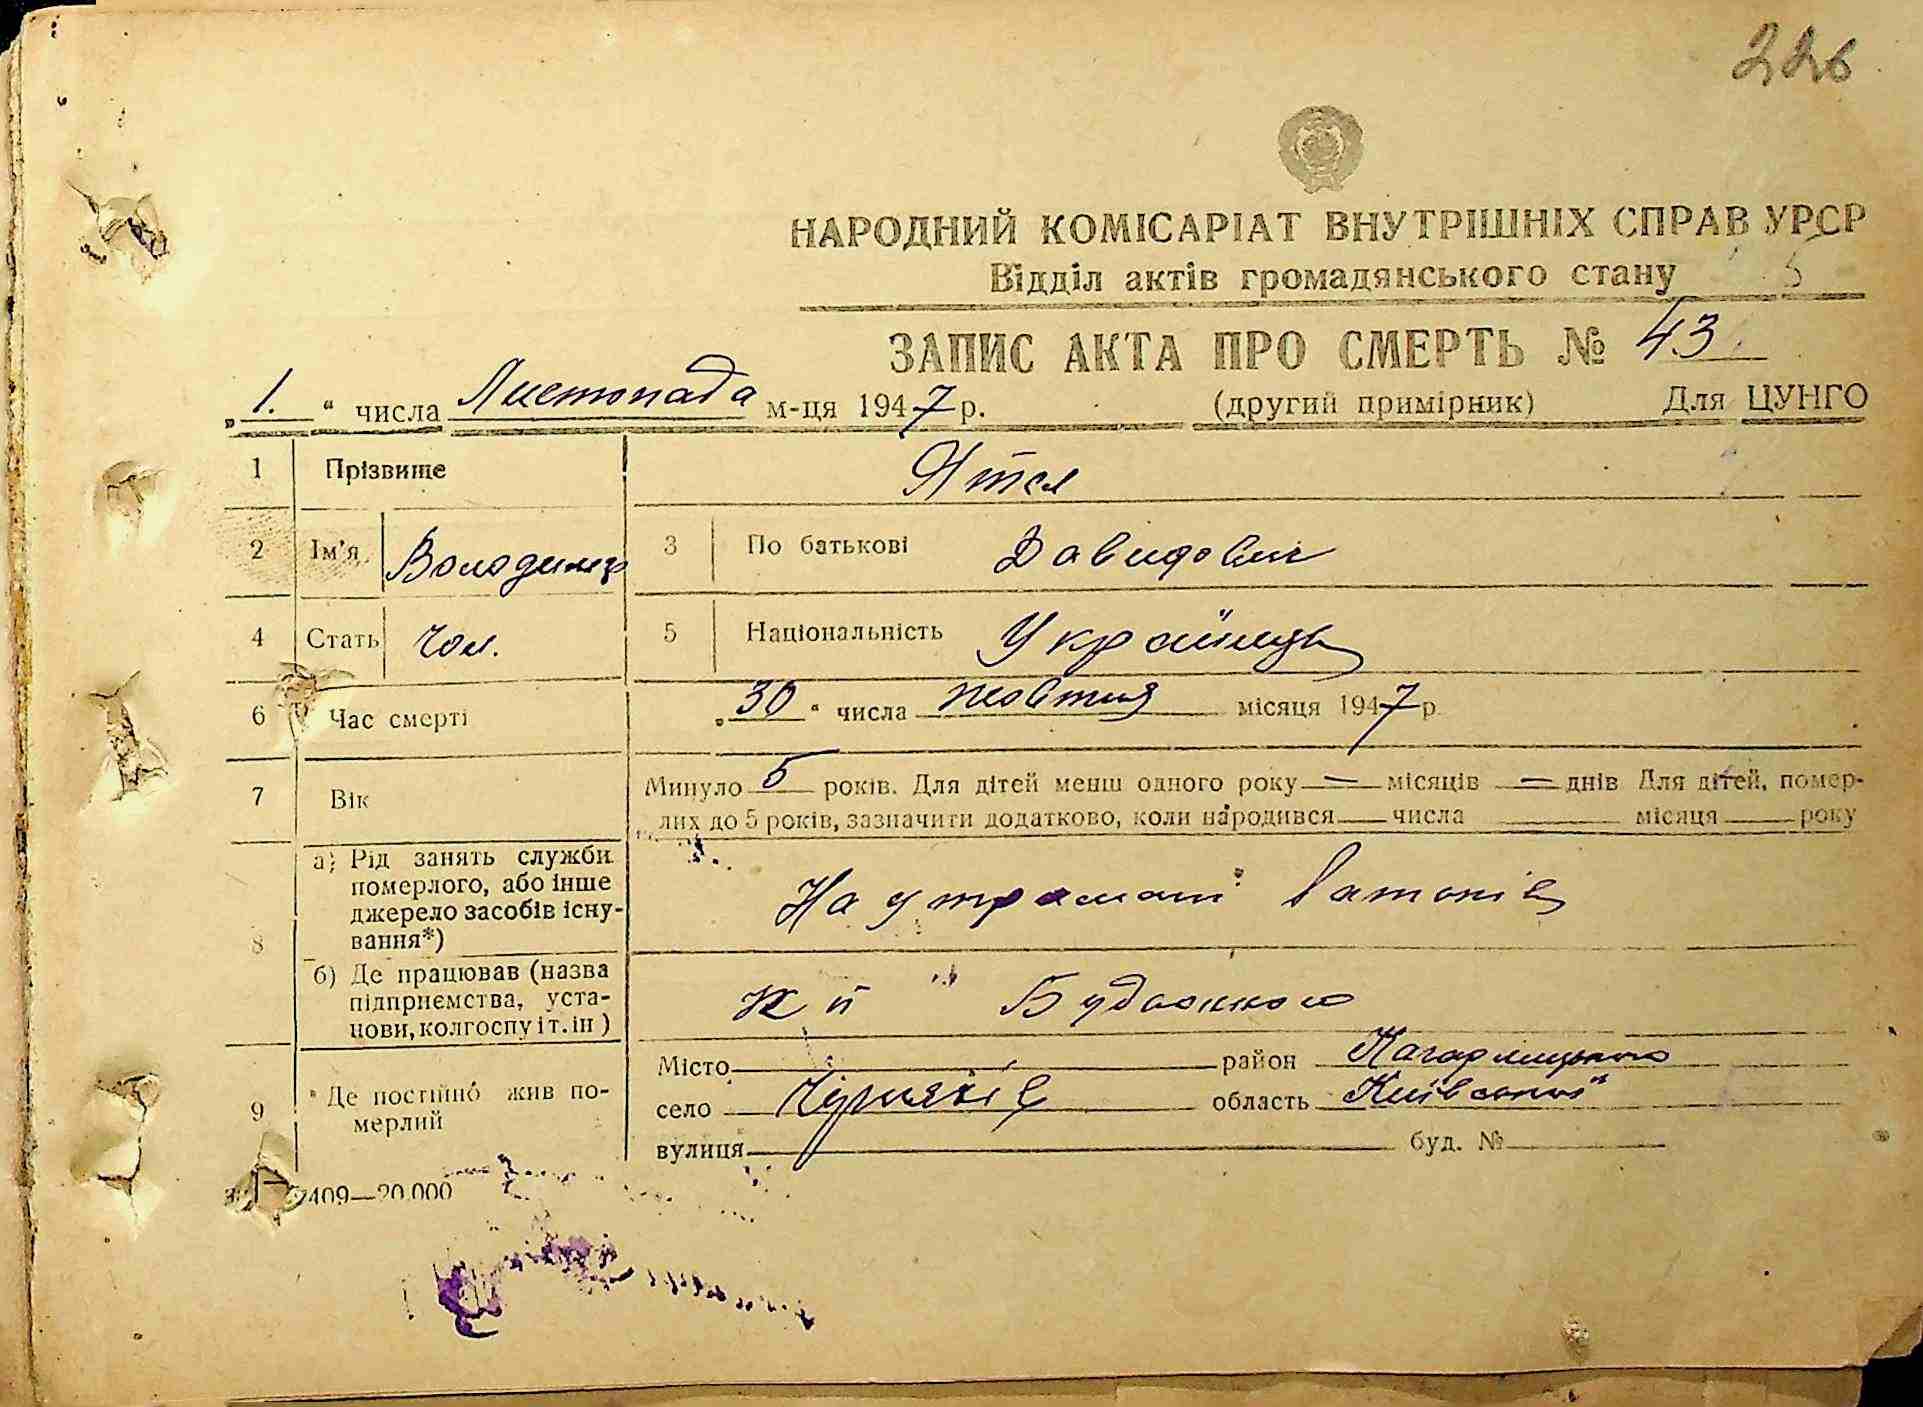 226
НАРОДНИЙ КОМІСАРІАТ ВНУТРІШНІХ СПРАВ УРСР
Відділ актів громадянського стану
ЗАПИС АКТА ПРО СМЕРТЬ № 43
„1.“ числа Листопада м-ця 1947 р. (другий примірник) Для ЦУНГО
1 Прізвище
2 Ім'я Володимир 3 По батькові Давидович
4 Стать Чол. 5 Національність Українець
6 Час смерті „30“ числа жовтня місяця 1947 р
7 Вік Минуло 5 років. Для дітей менш одного року — місяців — днів Для дітей, помер-
лих до 5 років, зазначити додатково, коли народився числа місяця року
8 а) Рід занять служби
померлого, або інше
джерело засобів існу-
вання*)
На утриманні батьків
б) Де працював (назва
підприємства, уста-
нови, колгоспу і т. ін)
9 Де постійно жив по-
мерлий
Місто район Кагарлицького
село Черняхів область Київської
вулиця буд. №
409—20.000